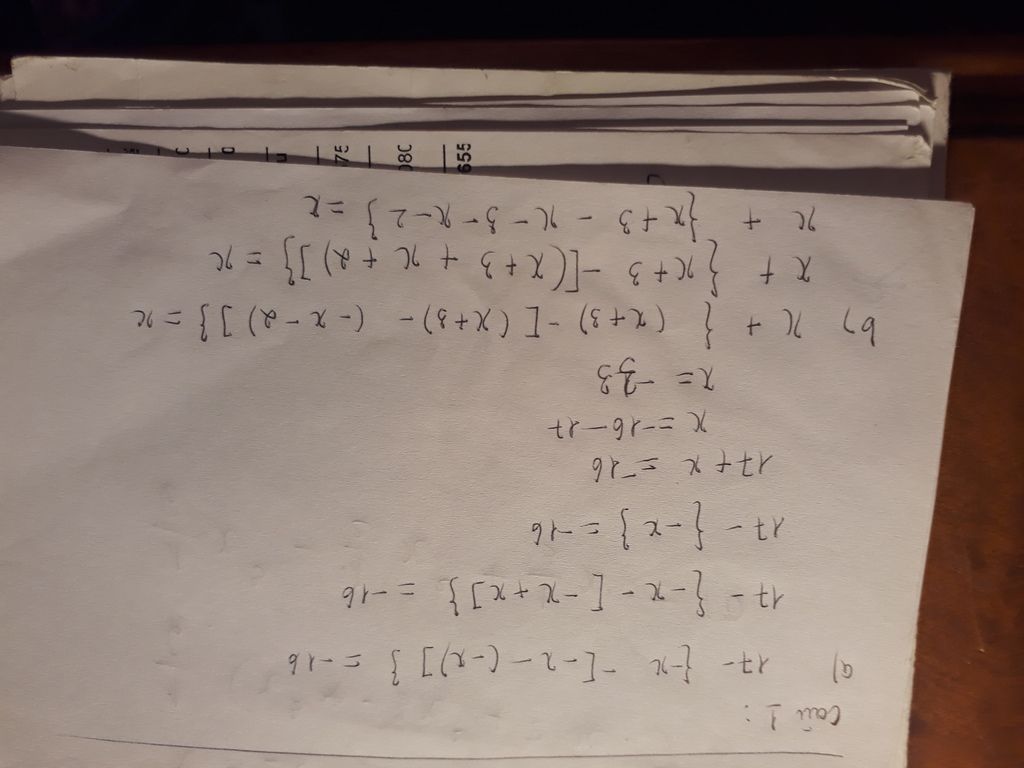 Câu 1 :
a) 17 - {-x - [-x - (-x)] } = -16
17 - {-x - [-x+x]} = -16
17 - {-x} = -16
17 + x = -16
x = -16 - 17
x = -33
b) x + { (x+3) - [ (x+3) - (-x-2) ] } = x
x + {x+3 - [(x+3 + x + 2)]} = x
x + {x+3 - x - 3 - x - 2 } = x
655
080
75